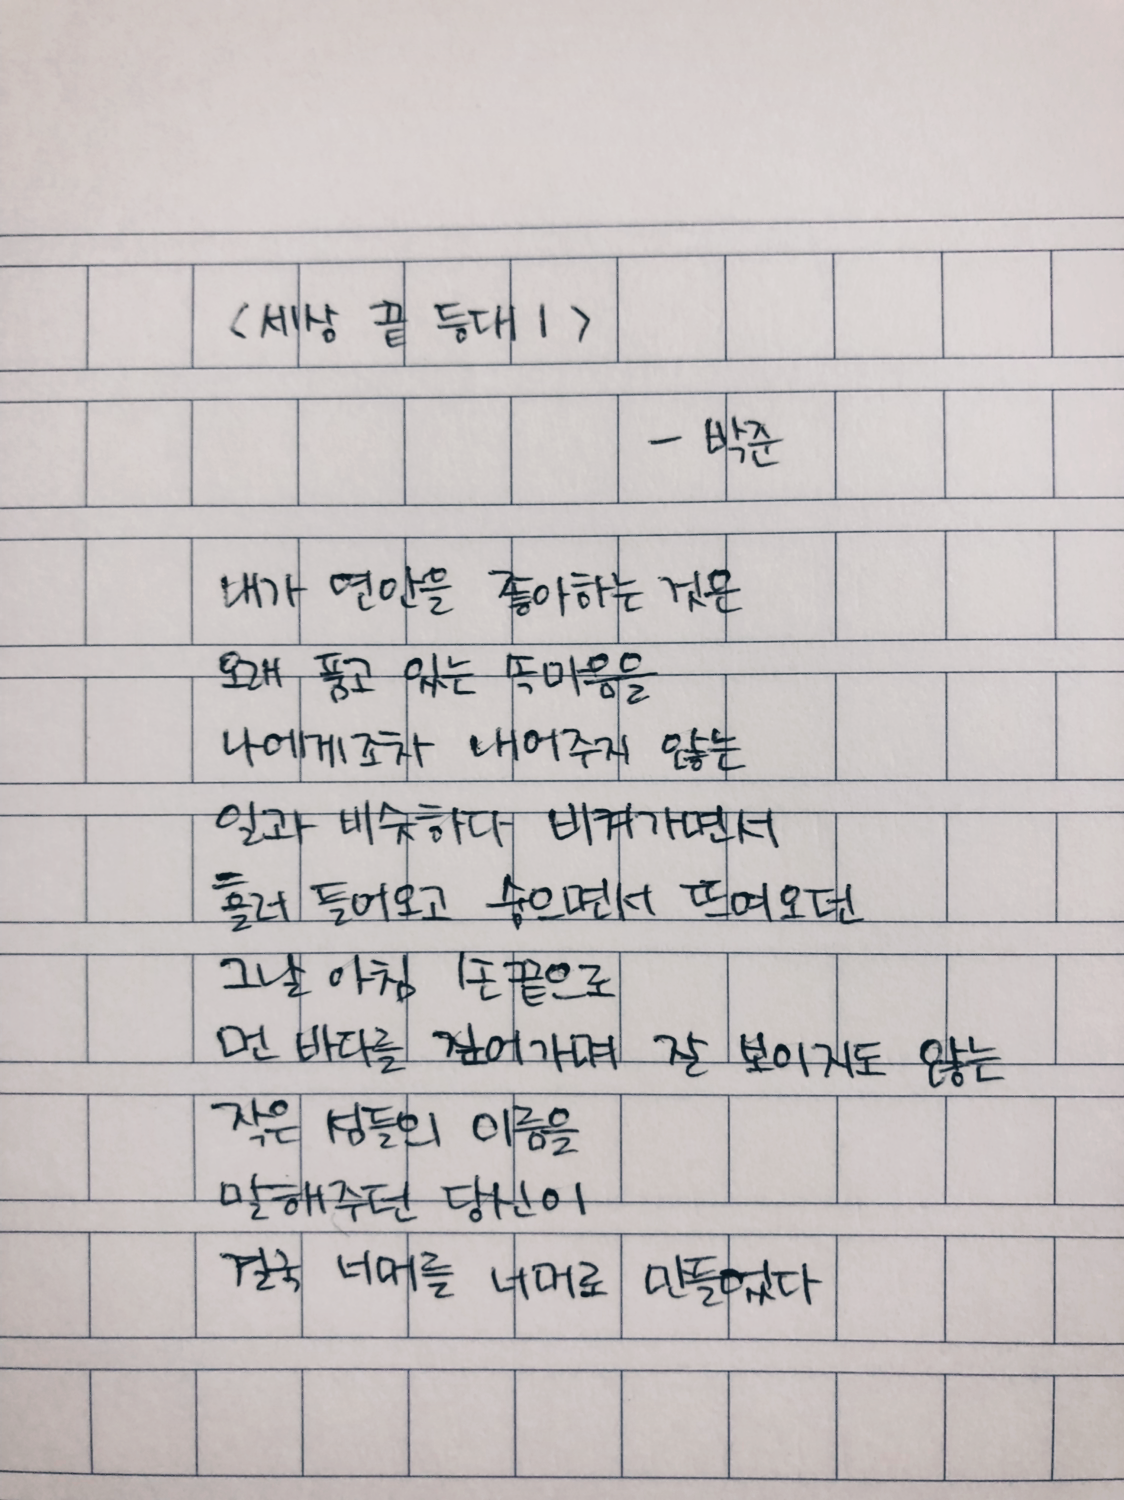 <세상 끝 등대 1>
- 박준
내가 연안을 좋아하는 것은
오래 품고 있는 속마음을
나에게조차 내어주지 않는
일과 비슷하다 비켜가면서
흘러 들어오고 숨으면서 뜨여오던
그날 아침 손끝으로
먼 바다를 짚어가며 잘 보이지도 않는
작은 섬들의 이름을
말해주던 당신이
결국 너머를 너머로 만들었다